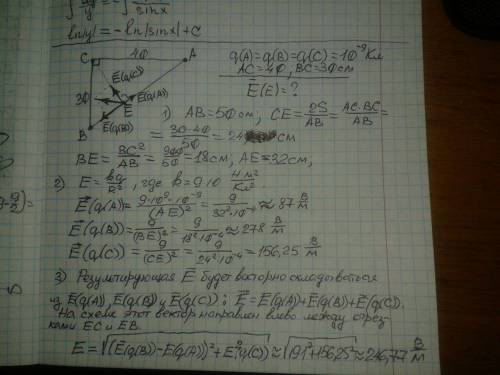 ln|y| = -ln|sinx| + C
C 4φ A
3φ
E⃗(q(C))
E⃗(q(A))
E
E⃗(q(B))
B
q(A)=q(B)=q(C)=10⁻⁹ Кл
AC=4φ, BC=3φ см
E⃗(E)=?
1) AB=5φ см, CE=2S/AB=AC·BC/AB=
=3φ·4φ/5φ=24 см
BE=BC²/AB=9φφ/5φ=18см, AE=32см,
2) E=kq/R², где k=9·10⁹ Н·м²/Кл²
E⃗(q(A))=9·10⁹·10⁻⁹/(AE)²=9/32²·10⁻⁴≈87 В/м
E⃗(q(B))=9/(BE)²=9/18²·10⁻⁴≈278 В/м
E⃗(q(C))=9/(CE)²=9/24²·10⁻⁴=156,25 В/м
3) Результирующая E⃗ будет векторно складываться
из E⃗(q(A)), E⃗(q(B)) и E⃗(q(C)): E⃗=E⃗(q(A))+E⃗(q(B))+E⃗(q(C)).
На схеме этот вектор направлен влево между отрез-
ками EC и EB.
E=√((E⃗(q(B))-E⃗(q(A)))²+E²(q(C)))≈√(191²+156,25²)≈246,77 В/м